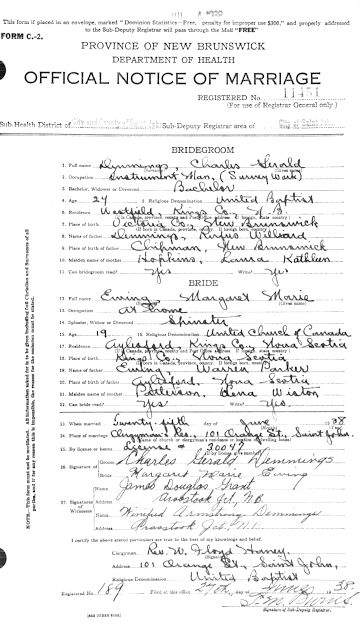 This form if placed in an envelope, marked "Dominion Statistics—Free, penalty for improper use $300," and properly addressed
to the Sub-Deputy Registrar will pass through the Mail "FREE"
FORM C.-2.
PROVINCE OF NEW BRUNSWICK
DEPARTMENT OF HEALTH
OFFICIAL NOTICE OF MARRIAGE
REGISTERED No. 11451
(For use of Registrar General only.)
Sub-Health District of City and County of Saint John Sub-Deputy Registrar area of City of Saint John
BRIDEGROOM
1. Full name Demmings, Charles Gerald
2. Occupation Instrument Man, (Survey Work)
3. Bachelor, Widower or Divorced Bachelor
4. Age 24 5. Religious Denomination United Baptist
6. Residence Westfield, Kings Co., N.B.
7. Place of birth Victoria Co., New Brunswick
8. Name of father Demmings, Rufus William
9. Place of birth of father Chipman, New Brunswick
10. Maiden name of mother Hopkins, Laura Kathleen
11. Can bridegroom read? Yes Write? Yes
BRIDE
12. Full name Ewing Margaret Marie
13. Occupation At Home
14. Spinster, Widow or Divorced Spinster
15. Age 19 16. Religious Denomination United Church of Canada
17. Residence Aylesford, Kings Co., Nova Scotia
18. Place of birth Kings Co., Nova Scotia
19. Name of father Ewing, Warren Parker
20. Place of birth of father Aylesford, Nova Scotia
21. Maiden name of mother Patterson, Lena
22. Can bride read? Yes Write? Yes
23. When married Twenty-fifth day of June 1938
24. Place of marriage Clergyman's Res., 101 Orange St., Saint John
25. By license or banns License # 3004
26. Signature of Charles Gerald Demmings
Margaret Marie Ewing
27. Signatures of Witnesses James Douglas Grant
Address Aroostook Jct, N.B.
Winifred Armstrong Demmings
Address Aroostook Jct. N.B.
I certify the above stated particulars are true to the best of my knowledge and belief.
Clergyman Rev. W. Floyd
Address 101 Orange St., Saint John,
Religious Denomination United Baptist
Registered No. 189 Filed at this office 27th June 38
Signature of Sub-Deputy Registrar
NOTE.—This form must not be mutilated.